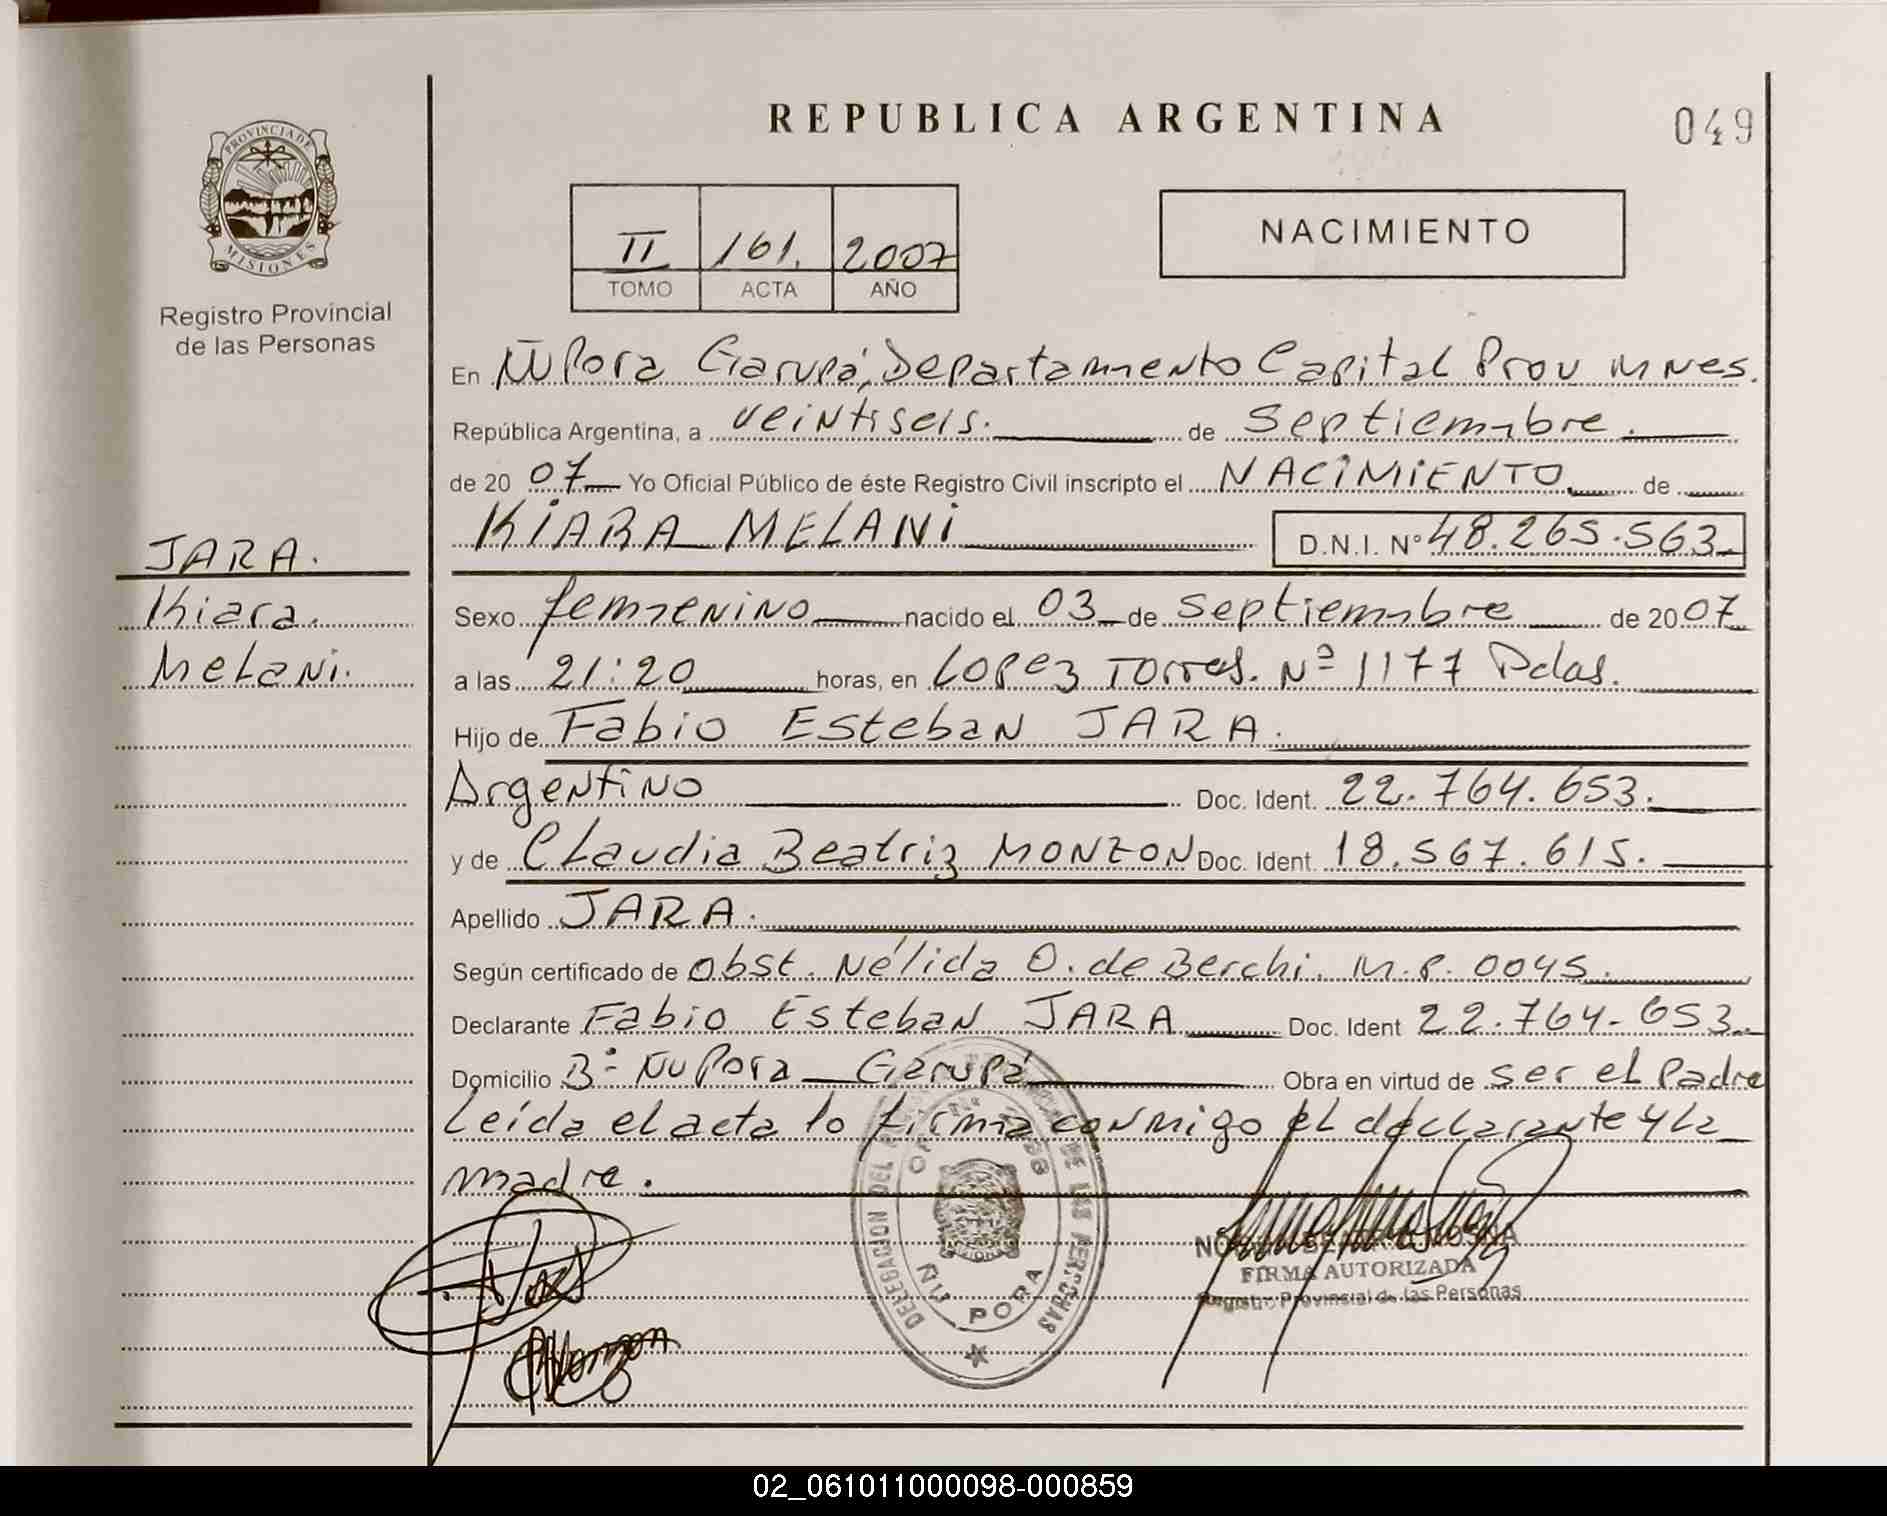 REPUBLICA ARGENTINA
049
PROVINCIA DE
MISIONES
Registro Provincial
de las Personas
II 161. 2007
TOMO ACTA AÑO
NACIMIENTO
En Ñu Pora Garupá, Departamento Capital Prov Mnes.
República Argentina, a veintiseis. de Septiembre.
de 20 07 Yo Oficial Público de éste Registro Civil inscripto el NACIMIENTO de
KIARA MELANI D.N.I. N° 48.265.563
JARA.
Kiara.
Melani.
Sexo femenino nacido el 03 de Septiembre de 20 07
a las 21:20 horas, en Lopez Torres. Nº 1177 Pdas.
Hijo de Fabio Esteban JARA.
Argentino Doc. Ident. 22.764.653.
y de Claudia Beatriz MONZON Doc. Ident. 18.567.615.
Apellido JARA.
Según certificado de Obst. Nélida O. de Berchi. M.P. 0045.
Declarante Fabio Esteban JARA Doc. Ident 22.764.653.
Domicilio B° Ñu Pora Garupá Obra en virtud de ser el Padre
Leída el acta lo firma conmigo el declarante y la
madre.
DELEGACION DEL DE LAS PERSONAS
ÑU PORA
MISIONES
FIRMA AUTORIZADA
Registro Provincial de las Personas
02_061011000098-000859